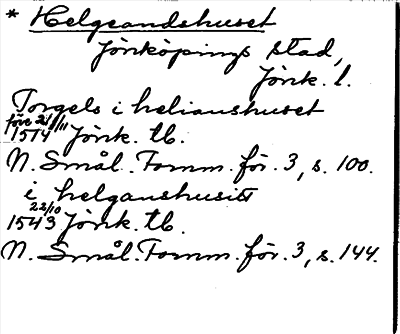 * Helgeandshuset
Jönköpings stad,
Jönk. l.
Torgels i helianshuset
före 21/11
1514 Jönk. tb.
N. Smål. Fornm. för. 3, s. 100.
i helganshusit
22/10
1543 Jönk. tb.
N. Smål. Fornm. för. 3, s. 144.